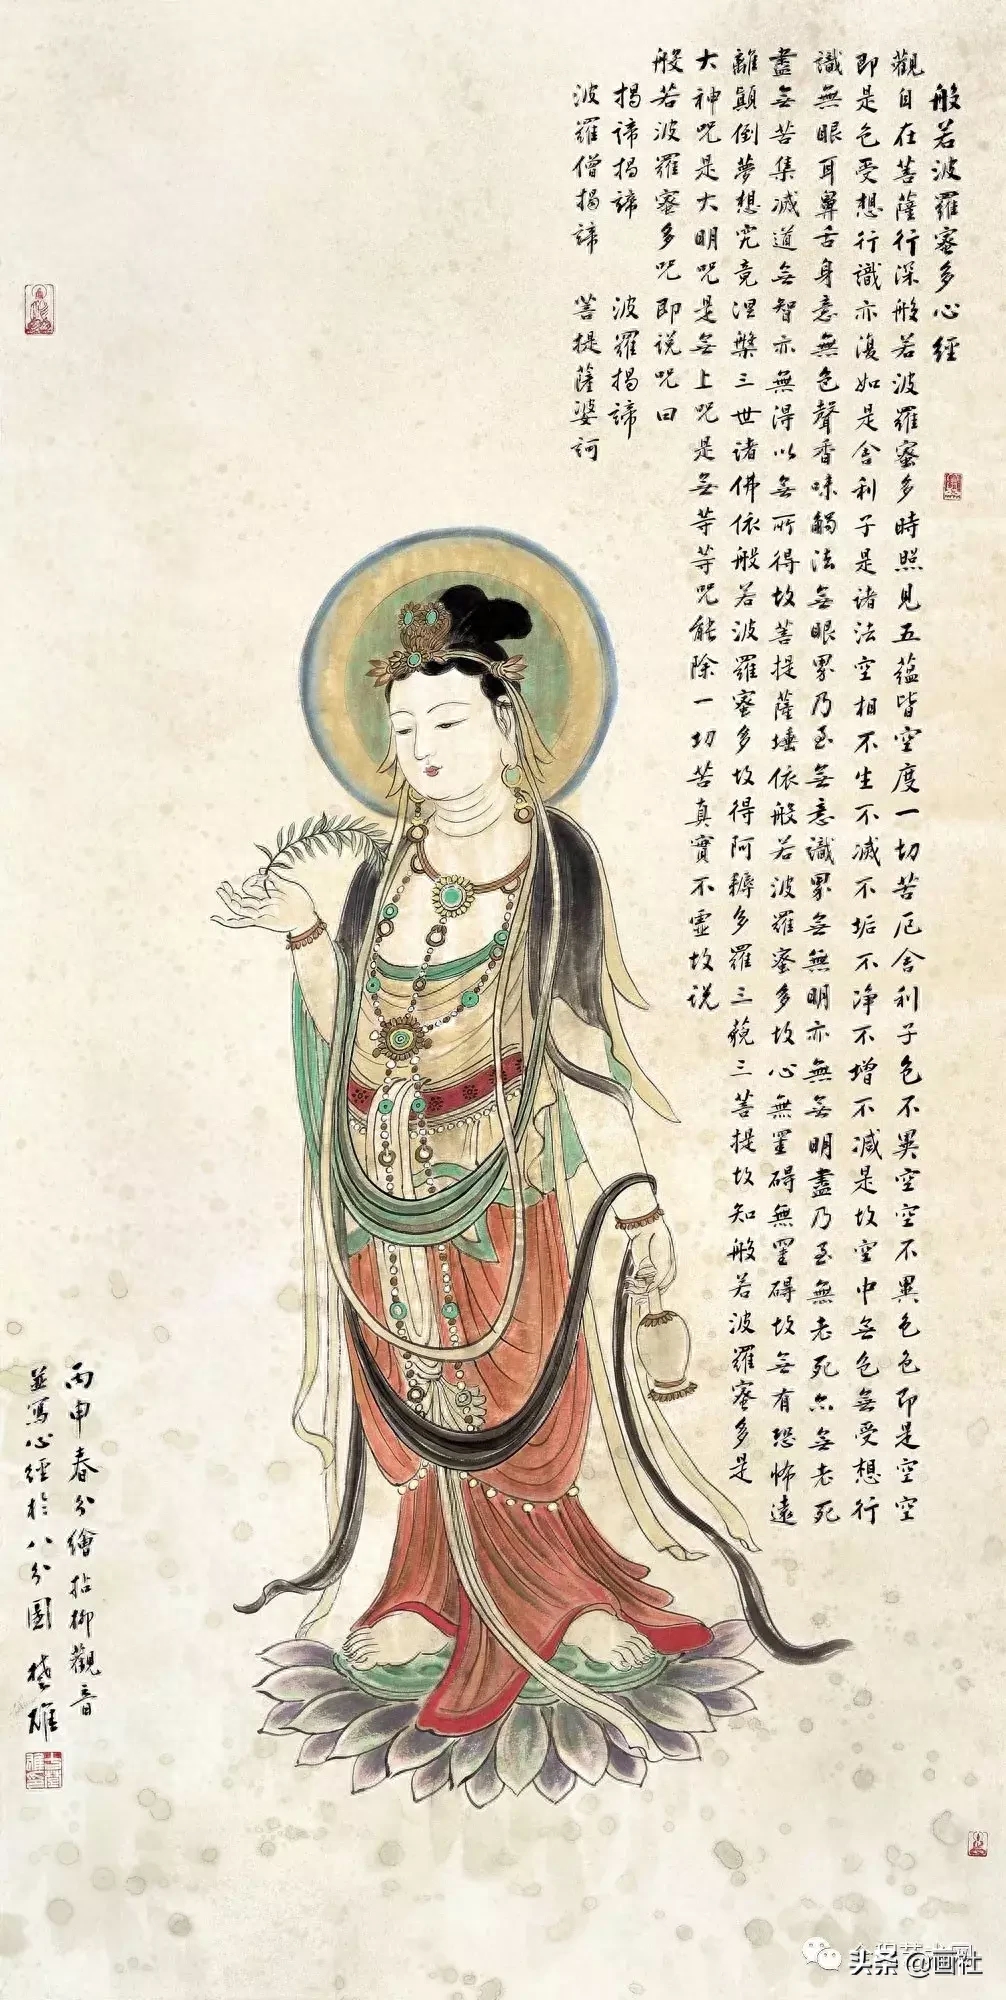 般若波羅蜜多心經
觀自在菩薩行深般若波羅蜜多時照見五蘊皆空度一切苦厄舍利子色不異空空不異色色即是空空
即是色受想行識亦復如是舍利子是諸法空相不生不滅不垢不淨不增不減是故空中无色无受想行
識無眼耳鼻舌身意無色聲香味觸法无眼界乃至无意識界无無明亦無无明盡乃至無老死亦无老死
盡无苦集滅道无智亦無得以无所得故菩提薩埵依般若波羅蜜多故心無罣礙無罣礙故无有恐怖遠
離顛倒夢想究竟涅槃三世諸佛依般若波羅蜜多故得阿耨多羅三藐三菩提故知般若波羅蜜多是
大神咒是大明咒是无上咒是无等等咒能除一切苦真實不虛故説
般若波羅蜜多咒即説咒曰
揭諦揭諦 波羅揭諦
波羅僧揭諦 菩提薩婆訶
丙申春分繪拈柳觀音
並寫心經於八分園 楚雄
头条 @画社